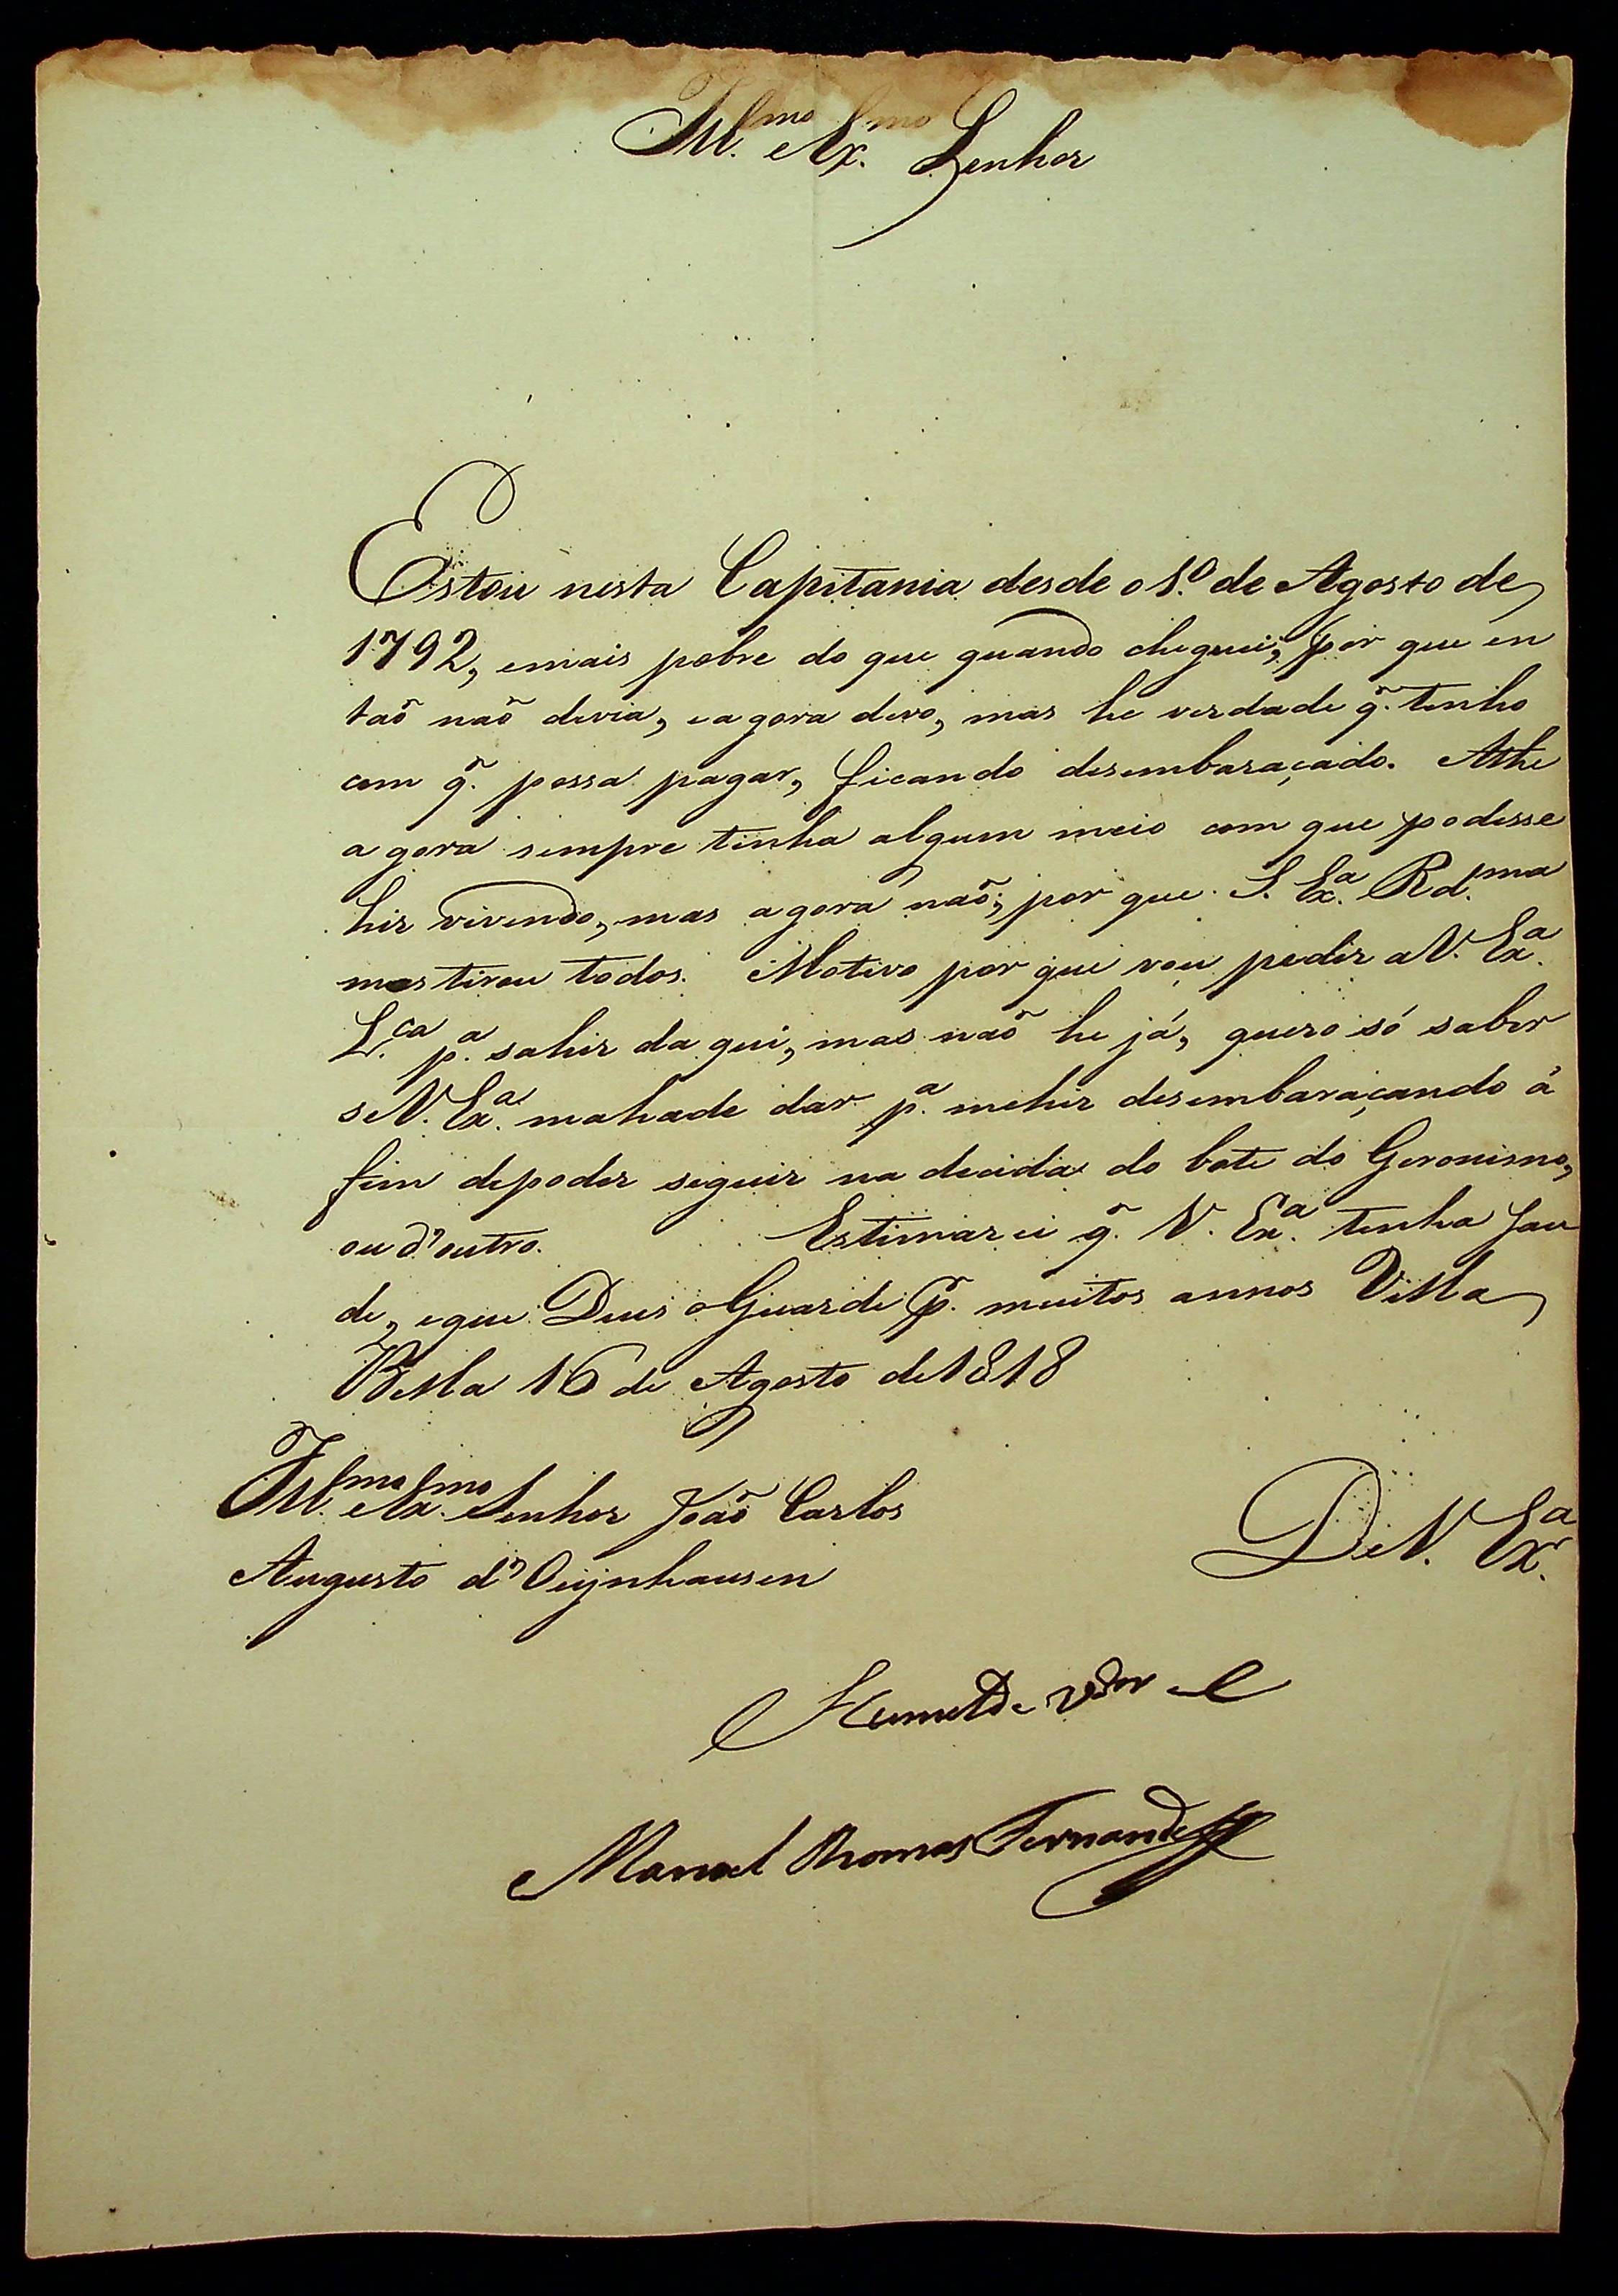 Ill.mo e Ex.mo Senhor
Estou nesta Capitania desde o 1.º de Agosto de
1792, emais pobre do que quando cheguei, por que en
taõ naõ devia, eagora devo, mas he verdade q̃. tenho
com q̃. possa pagar, ficando desembaraçado. Athe
agora sempre tinha algum meio com que podesse
hir vivendo, mas agora naõ; por que S. Ex.a Rd.ma
mos tirou todos. Motivo por que vou pedir aV. Ex.a
L.ca p.a sahir daqui, mas naõ he já, quero só saber
seV. Ex.a mahade dar p.a mehir desembaraçando á
fim depoder seguir na decida do bote do Geronismo,
ou d'outro. Estimarei q̃. V. Ex.a tenha sau
de, eque Deus oGuarde p̃. muitos annos Villa
Bella 16 de Agosto de1818
Ill.mo e Ex.mo Senhor Joaõ Carlos
Augusto d'Oeynhausen
DeV. Ex.a
Manoel Thomas Fernandes